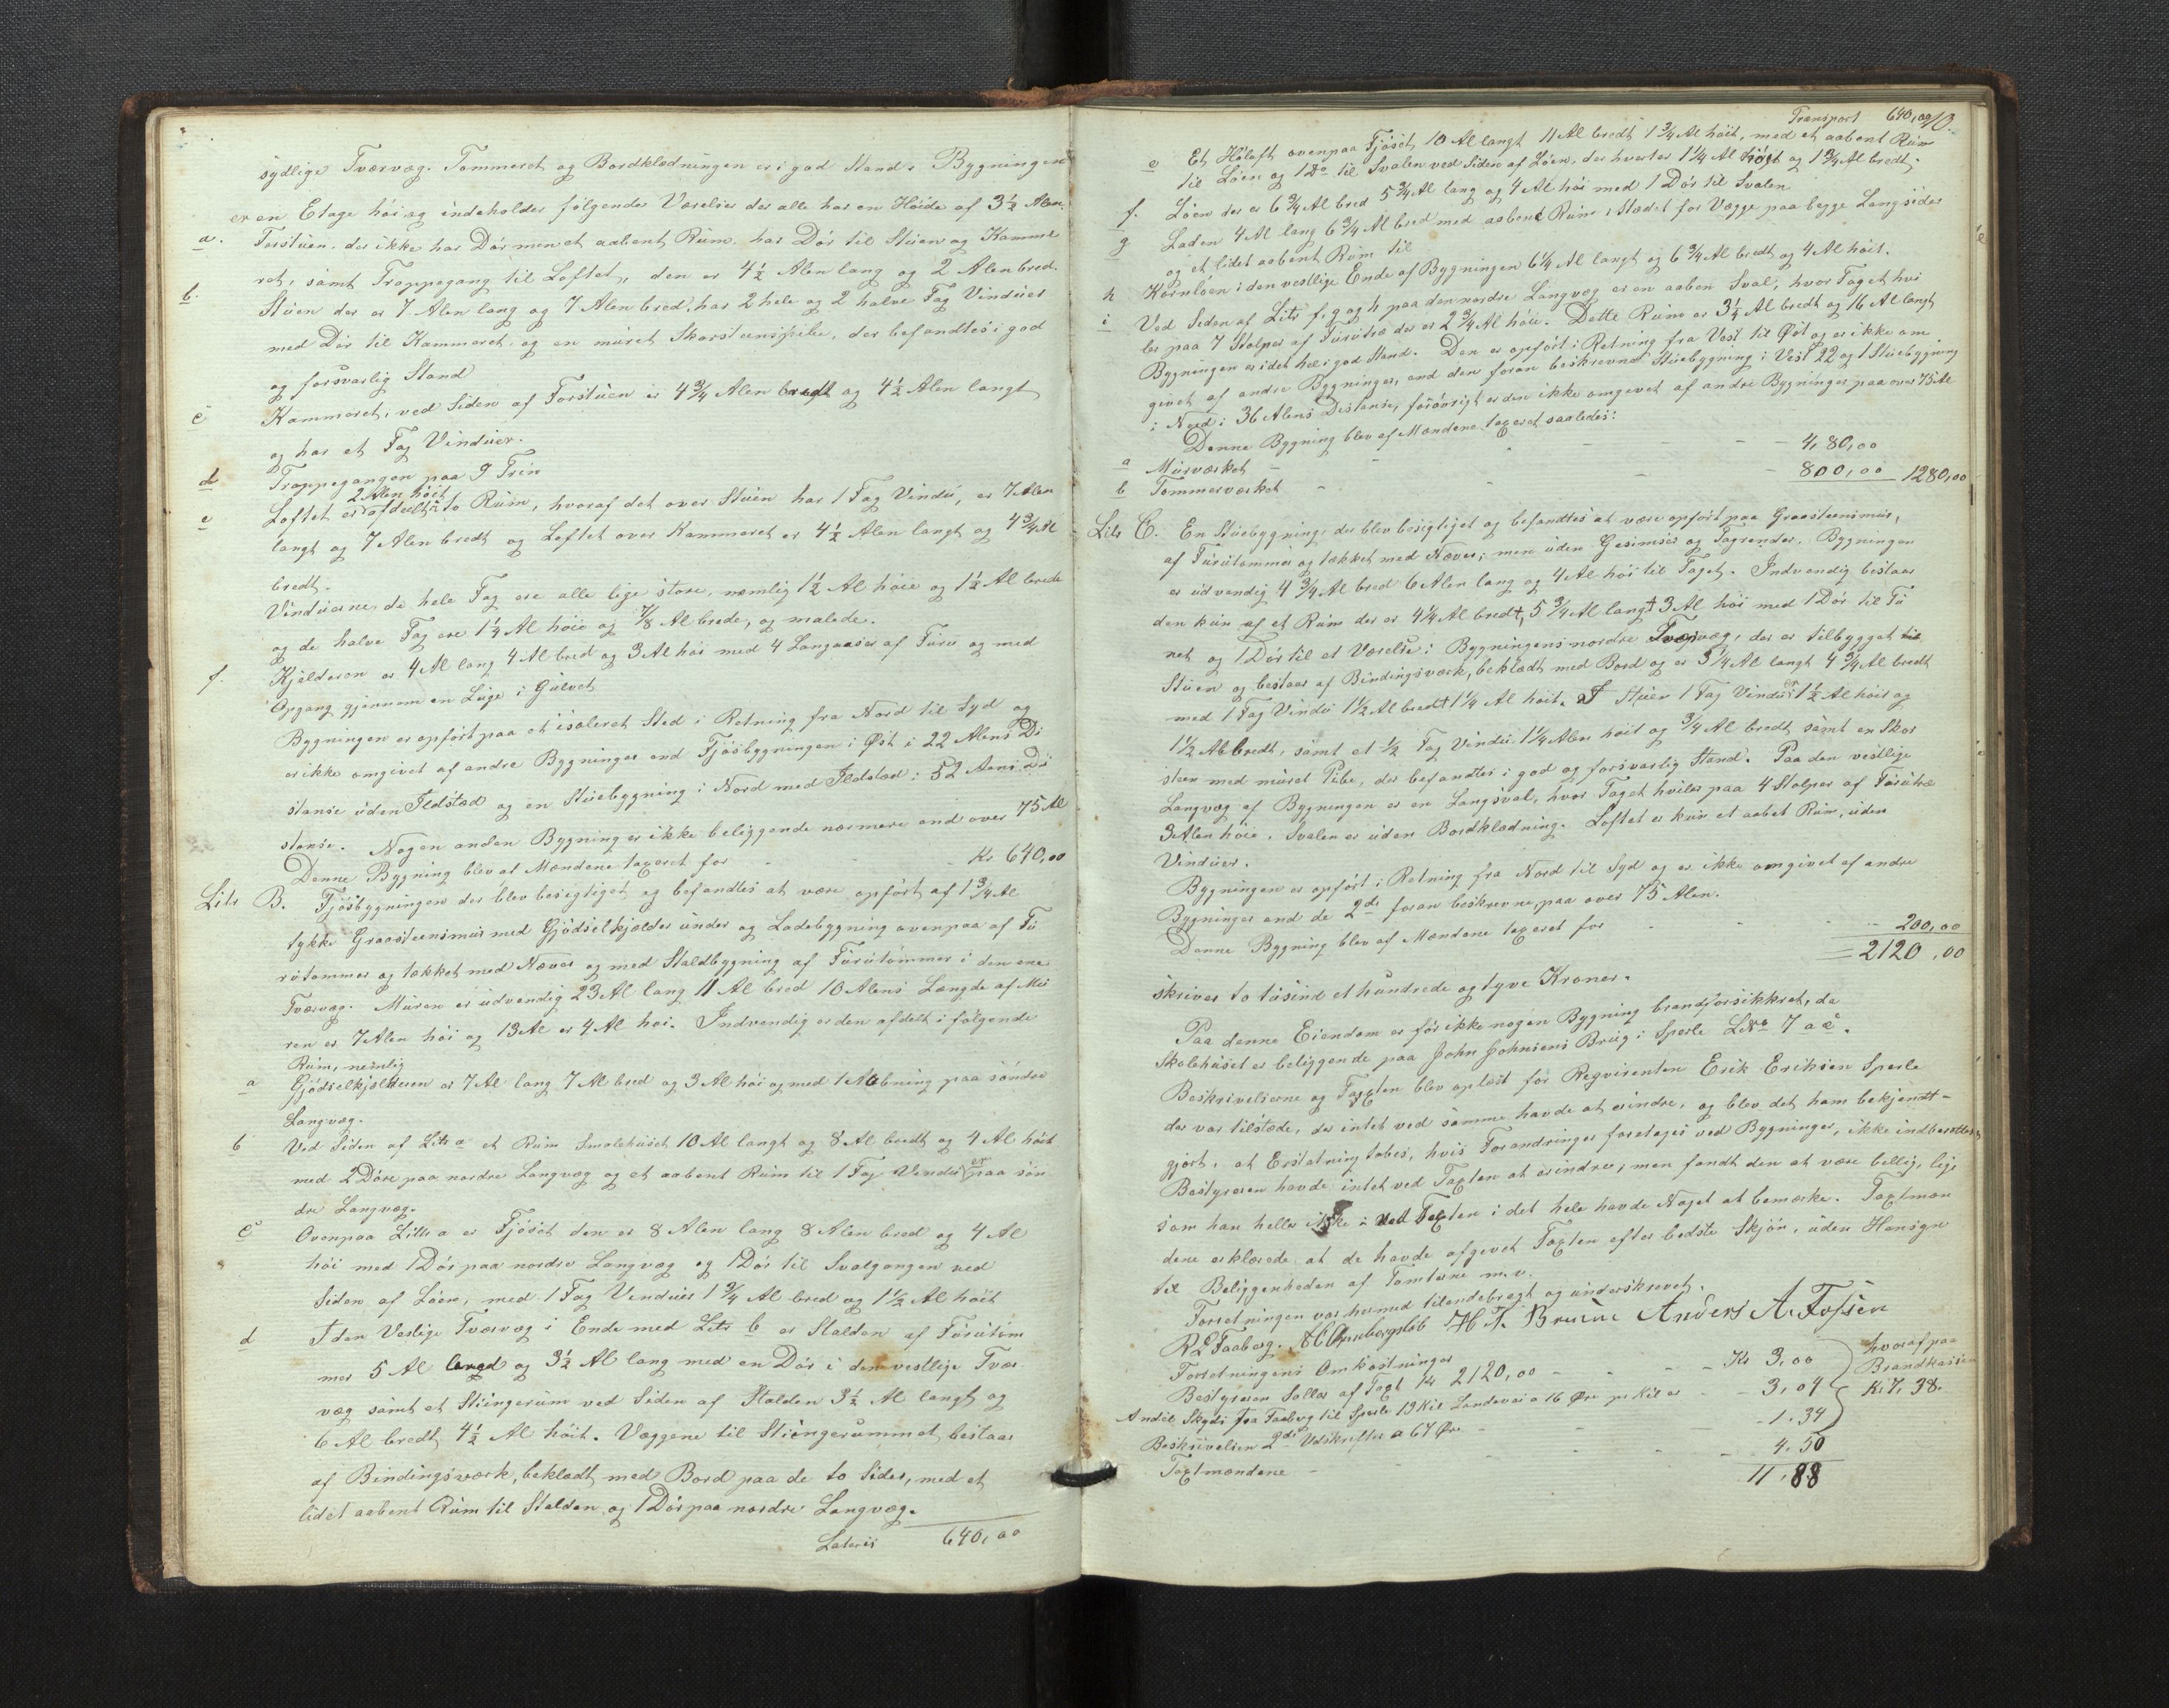 sydlige Tværvæg. Tømmeret og Bordklædningen er i god Stand. Bygningen
er en Etage høi og indeholder følgende Værelser der alle har en Høide af 3½ Alen.
a. Forstuen, der ikke har Dør men et aabent Rum, har Dør til Stuen og Kamme
ret, samt Trappegang til Loftet, den er 4½ Alen lang og 2 Alen bred.
b. Stuen der er 7 Alen lang og 7 Alen bred, har 2 hele og 2 halve Fag Vinduer
med Dør til Kammeret, og en muret Skorstenspibe, der befandtes i god
og forsvarlig Stand
c Kammeret, ved Siden af Forstuen er 4¾ Alen bredt og 4½ Alen langt
og har et Fag Vinduer.
d Trappegangen paa 9 Trin
2 Alen høit
e Loftet er afdeelt i to Rum, hvoraf det over Stuen har 1 Fag Vindu, er 7 Alen
langt og 7 Alen bredt og Loftet over Kammeret er 4½ Alen langt og 4¾ Al
bredt.
Vinduerne, de hele Fag ere alle lige store, nemlig 1½ Al høie og 1½ Al brede
og de halve Fag ere 1¼ Al høie og ⅞ Al brede, og malede.
f. Kjelderen er 4 Al lang 4 Al bred og 3 Al høi med 4 Langaaser af Furu og med
Opgang gjennem en Luge i Gulvet
Bygningen er opført paa et isoleret Sted i Retning fra Nord til Syd og
er ikke omgivet af andre Bygninger end Fjøsbygningen i Øst i 22 Alens Di
stanse uden Ildsted og en Stuebygning i Nord med Ildsted i 52 Alens Di
stanse. Nogen anden Bygning er ikke beliggende nærmere end over 75 Al
Denne Bygning blev af Mændene taxeret for - - - Kr 640,00
Litr B. Fjøsbygningen der blev besigtiget og befandtes at være opført af 1¾ Al
tykke Graasteensmur med Gjødselkjelder under og Ladebygning ovenpaa af Fu
rutømmer og tækket med Næver og med Staldbygning af Furutømmer i den ene
Tværvæg. Muren er udvendig 23 Al lang 11 Al bred 10 Alens Længde af Mu
ren er 7 Alen høi og 13 Al er 4 Al høi. Indvendig er den afdelt i følgende
Rum, nemlig
a Gjødselkjelderen er 7 Al lang 7 Al bred og 3 Al høi og med 1 Aabning paa søndre
Langvæg.
b Ved Siden af Litr a et Rum Smalehuset 10 Al langt og 8 Al bredt og 4 Al høit
med 2 Døre paa nordre Langvæg og et aabent Rum til 1 Fag Vinduer paa søn
dre Langvæg.
c Ovenpaa Littr a er Fjøset den er 8 Alen lang 8 Alen bred og 4 Al
høi med 1 Dør paa nordre Langvæg og 1 Dør til Svalgangen ved
Siden af Løen, med 1 Fag Vinduer 1¾ Al bred og 1½ Al høit
d I den Vestlige Tværvæg i Ende med Litr b er Stalden af Furutøm
mer 5 Al og 3½ Al lang med en Dør i den vestlige Tvær
væg samt et Stiingerum ved Siden af Stalden 3½ Al langt og
6 Al bredt, 4½ Al høit. Væggene til Stiingerummet, bestaar
af Bindingsværk, beklædt med Bord paa de to Sider, med et
lidet aabent Rum til Stalden og 1 Dør paa nordre Langvæg.
Lateris 640,00
Transport 640,00 10.
e Et Høloft ovenpaa Fjøset, 10 Al langt 11 Al bredt 1¾ Al høit, med et aabent Rum
til Løen og 1 Do til Svalen ved Siden af Løen, der hvert er 1¼ Al høgt og 1¾ Al bredt.
f. Løen der er 6¾ Al bred 5¾ Al lang og 4 Al høi med 1 Dør til Svalen
g Laden 4 Al lang 6¾ Al bred med aabent Rum i Stedet for Vægge paa begge Langsider
og et lidet aabent Rum til
h Kornløen i den vestlige Ende af Bygningen 6¼ Al langt og 6¾ Al bredt og 4 Al høit.
i Ved Siden af Litr f, g og h paa den nordre Langvæg er en aaben Sval, hvor Taget hvi
ler paa 7 Stolper af Furutræ der er 2¾ Al høie. Dette Rum er 3¼ Al bredt og 16 Al langt
Bygningen er i det hele i god Stand. Den er opført i Retning fra Vest til Øst og er ikke om
givet af andre Bygninger, end den foran beskrevne Stuebygning i Vest 22 og 1 Stuebygning
i Nord i 36 Alens Distanse, forøvrigt er den ikke omgivet af andre Bygninger paa over 75 Al
Denne Bygning blev af Mændene taxeret saaledes:
a Murværket - - - - - 4,80,00
b Tømmerværket - - - - - 800,00 1280,00
Litr C. En Stuebygning, der blev besigtiget og befandtes at være opført paa Graasteensmur,
af Furutømmer og tækket med Næver, men uden Gesimser og Tagrender. Bygningen
er udvendig 4¾ Al bred 6 Alen lang og 4 Al høi til Taget. Indvendig bestaar
den kun af et Rum der er 4¼ Al bredt, 5¾ Al langt 3 Al høi med 1 Dør til Tu
net og 1 Dør til et Værelse i Bygningens nordre Tværvæg, der er tilbygget til
Stuen og bestaar af Bindingsværk, beklædt med Bord og er 3¼ Al langt 4¾ Al bredt
med 1 Fag Vindu 1½ Al bredt 1¼ Al høit. I Stuen 1 Fag Vinduer 1½ Al høit og
1½ Al bredt, samt et ½ Fag Vindu 1¼ Alen høit og ¾ Al bredt samt en Skor
sten med muret Pibe, der befandtes i god og forsvarlig Stand. Paa den vestlige
Langvæg af Bygningen er en Langsval, hvor Taget hviler paa 4 Stolper af Furutræ
3 Alen høie. Svalen er uden Bordklædning. Loftet er kun et aabet Rum, uden
Vinduer.
Bygningen er opført i Retning fra Nord til Syd og er ikke omgivet af andre
Bygninger end de 2de foran beskrevne, paa over 75 Alen.
Denne Bygning blev af Mændene taxeret for - - - 200,00
= 2120,00
skriver to tusind et hundrede og tyve Kroner.
Paa denne Eiendom er før ikke nogen Bygning brandforsikkret, da
Skolehuset er beliggende paa John Johnsens Brug i Sperle LNo 7 a c.
Beskrivelserne og Taxten blev oplæst for Reqvirenten Erik Eriksen Sperle
der var tilstede, der intet ved samme havde at erindre, og blev det ham bekjendt-
gjort, at Erstatning tabes, hvis Forandringer foretages ved Bygninger, ikke indberettes
Bestyreren havde intet ved Taxten at erindre, men fandt den at være billig, lige
som han heller ikke ved Taxten i det hele havde Noget at bemærke. Taxtmæn
dene erklærede at de havde afgivet Taxten efter bedste Skjøn, uden Hensyn
til Beliggenheden af Tomterne m.v.
Forretningen var hermed tilendebragt og underskrevet.
R L Faaberg. Anders A. Fossen
Forretningens Omkostninger
Bestyreren Sallar af Taxt Kr 2120,00 - - - Kr 3,00
Andel Skyds fra Faaberg til Sperle 19 Kil Landevei a 16 Øre pr Kil er - - 3,04
Beskrivelsen 2de Udskrifter a 67 Øre - - - 1.34
hvoraf paa
Brandkassen
Kr 7, 38.
Taxtmændene - - - 4.50
11,88